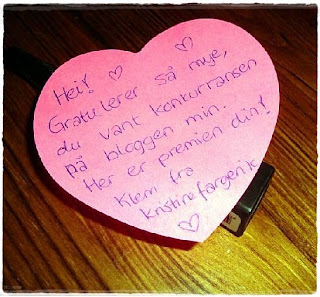 Hei! ♡
Gratulerer så mye,
du vant konkurransen
på bloggen min.
Her er premien din!
Klem fra
kristinefargerike
♡